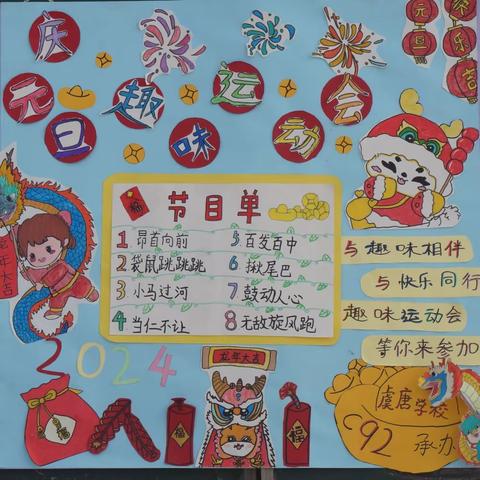 庆
元旦趣味运动会
元旦
快乐
节目单
1 昂首向前
2 袋鼠跳跳跳
3 小马过河
4 当仁不让
5 百发百中
6 揪尾巴
7 鼓动人心
8 无敌旋风跑
与趣味相伴
与快乐同行
趣味运动会
等你来参加
龙年大吉
2024
龙年大吉
福
福
虞唐学校
C92 承办